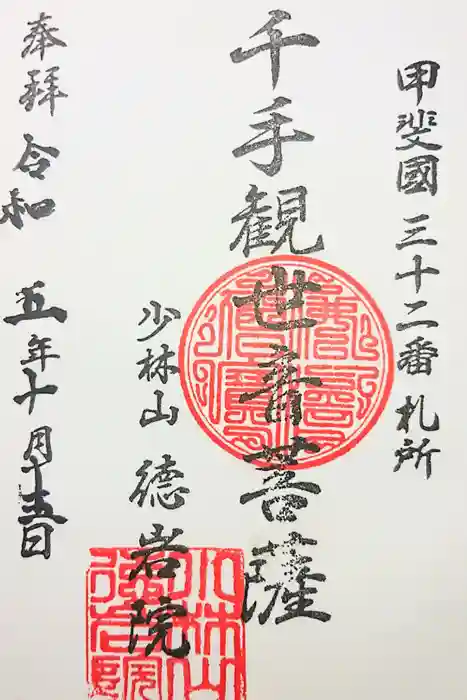 甲斐國三十二番札所
千手観世音菩薩
少林山 德岩院
奉拝 令和 五年十月十五日